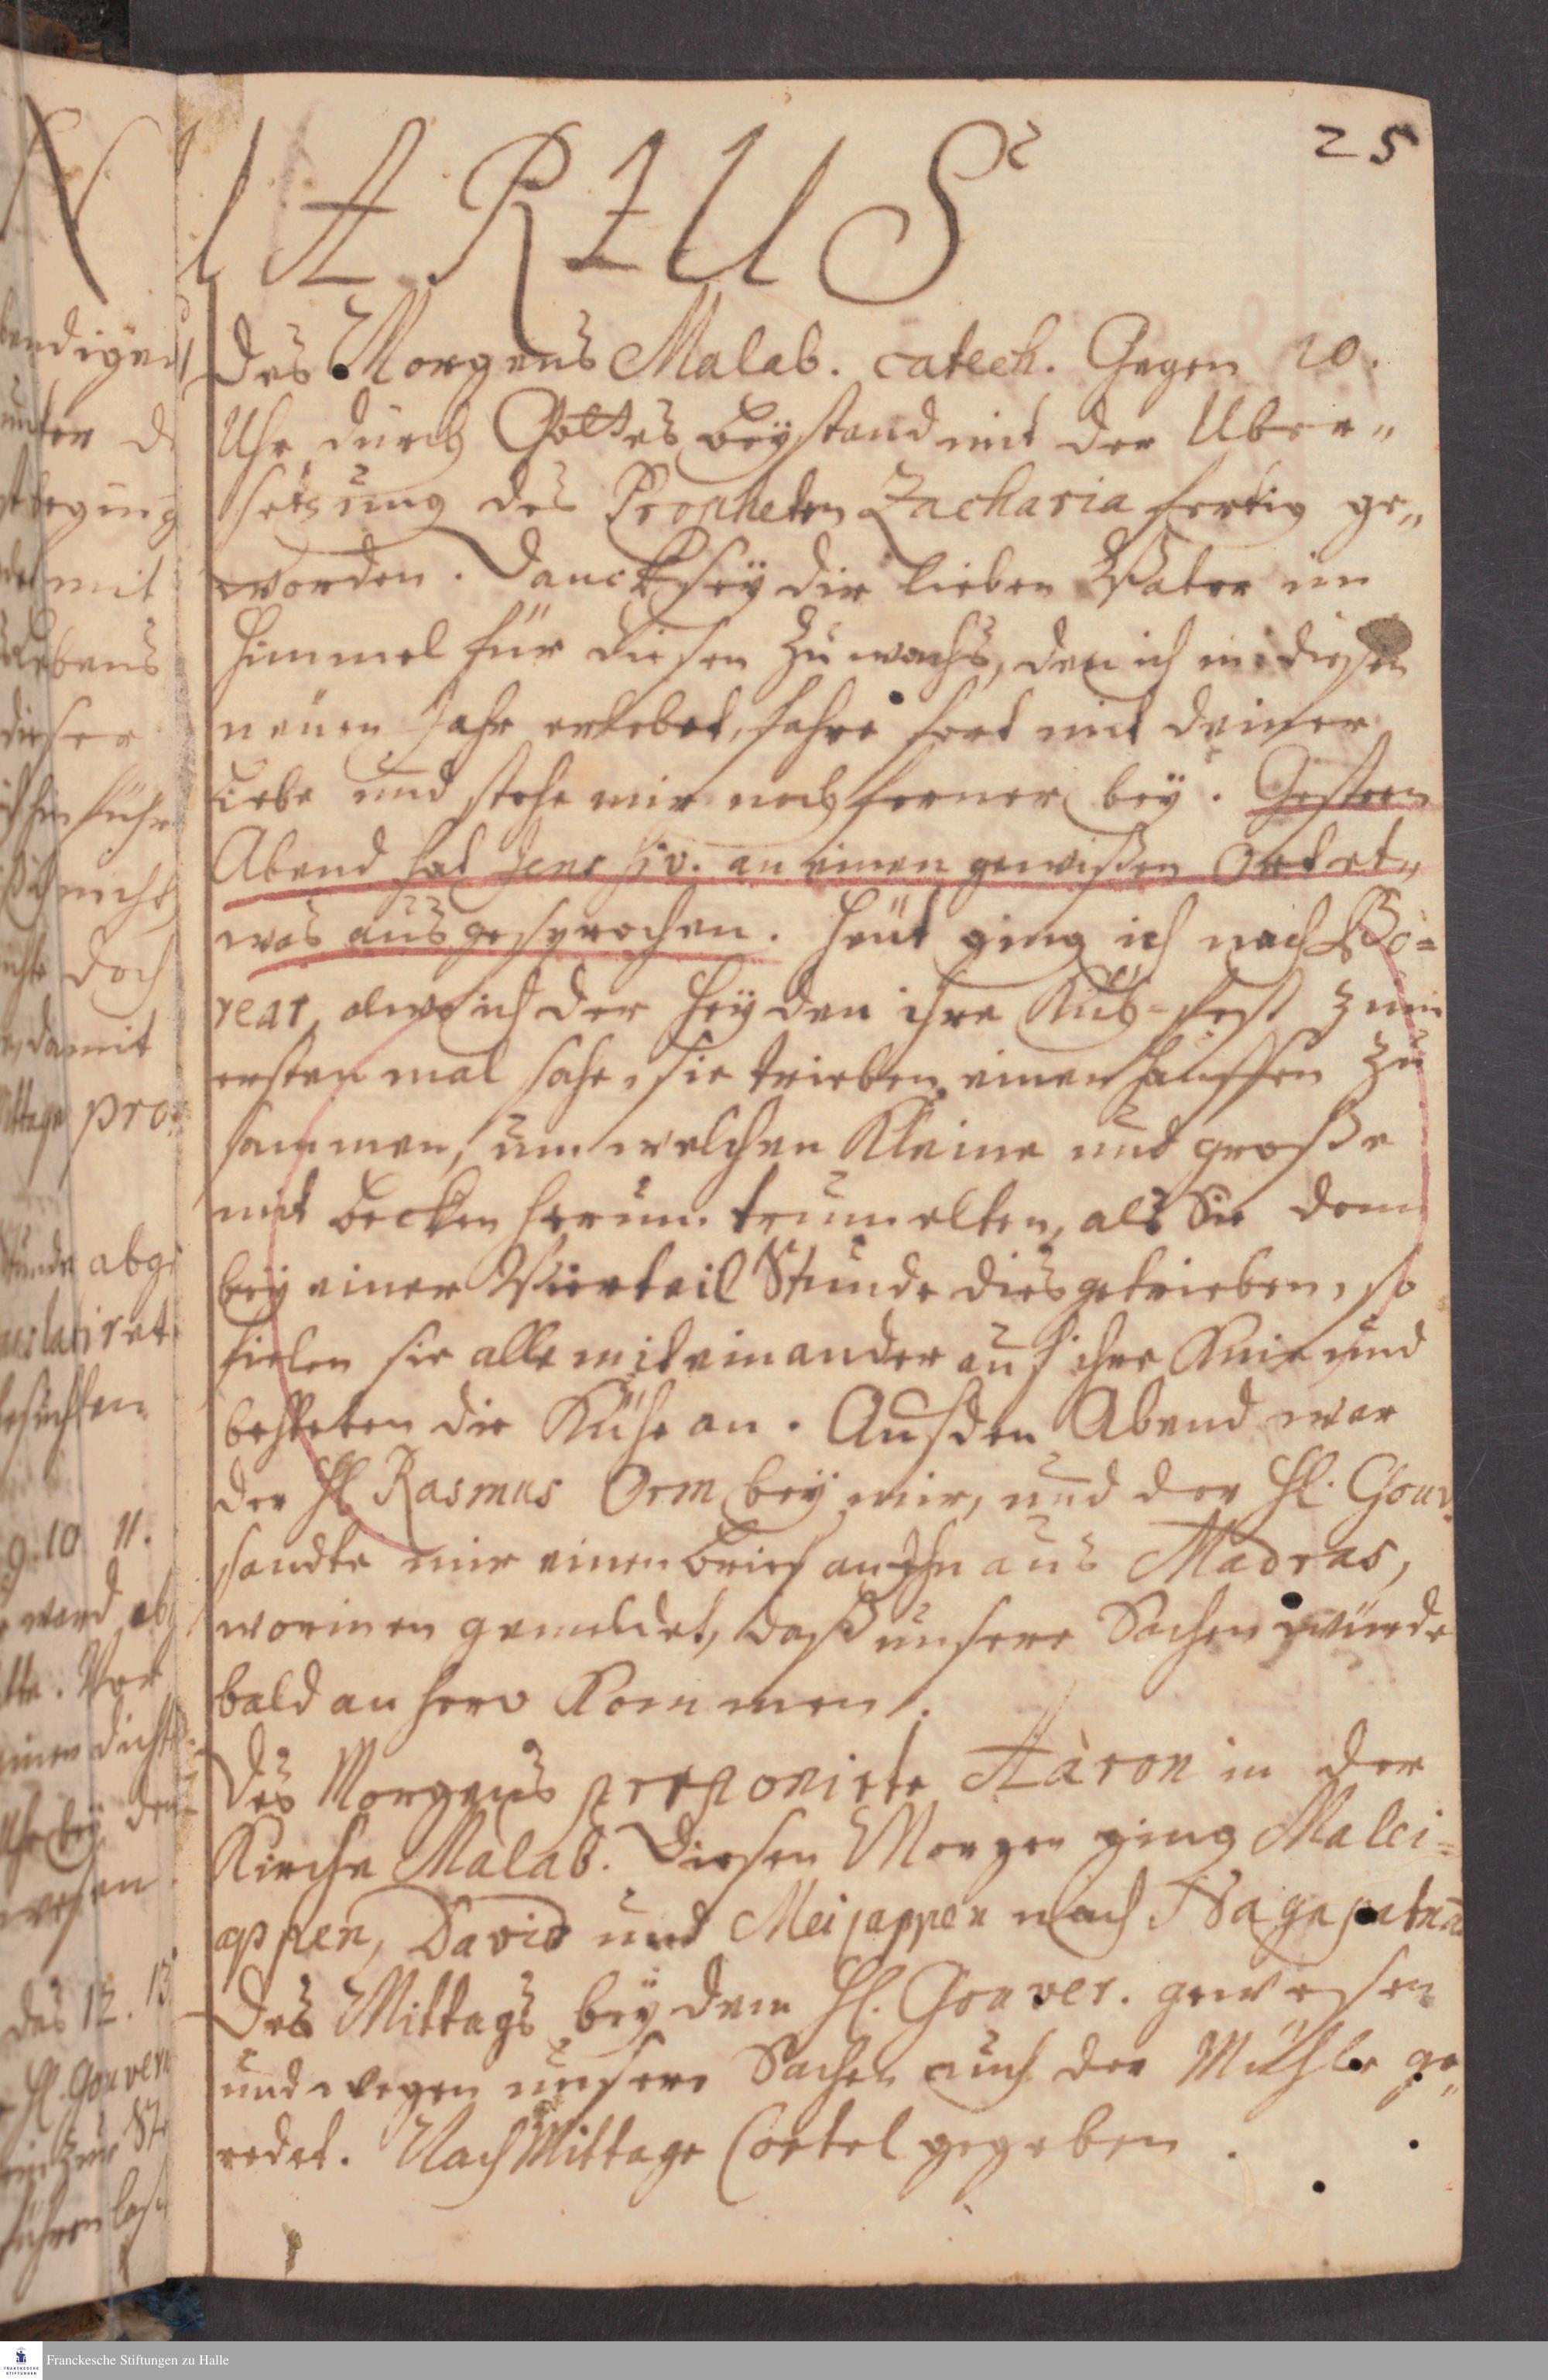 25
UARIUS
Des Morgens Malab. catech. Gegen 10.
Uhr durch Gottes Beystand mit der Uber„
setzung des Propheten Zacharia fertig ge„
worden. Danck sey dir lieber Vater im
Himmel für diesen Zuwachs, den ich in diesen
neuen Jahr erlebet, fahre fort mit deiner
Liebe und stehe mir noch ferner bey. Gestern
Abend hat Jens an einen gewißen Ort et„
was ausgesprochen. Heut ging ich nach Bo=
rear, alwo ich der Heyden ihre Küh-Fest zum
ersten mal sahe, sie trieben einen Hauffen zu
sammen, um welchen Kleine und große
mit Becken herum trummelten, als Sie denn
bey einer Vierteil Stunde dies getrieben, so
fielen sie alle mit einander auf ihre Knie und
behteten die Kühe an. Auf den Abend war
der H. Rasmus Orm bey mir, und der H. Gouv.
sandte mir einen Brief an Ihn aus Madras,
worinnen gemeldet, daß unsere Sachen würde
bald anhero Kommen.
Des Morgens proponirte Aaron in der
Kirche Malab. Diesen Morgen ging Malei=
appen, David und Meijappen nach Nagapatna
Des Mittags bey dem H. Gouver. gewesen
und wegen unsere Sachen auch der Mühle ge„
redet. Nach Mittage Cortel gegeben.
bendigen
unter d
dies mit
Lebens
dieser
nicht
doch
damit
pro=
Stunde abge
translatiret
besuchten
9. 10. 11.
ward ab
Vor
einen
bey den
des 12. 13
H. Gouvern
Franckesche Stiftungen zu Halle